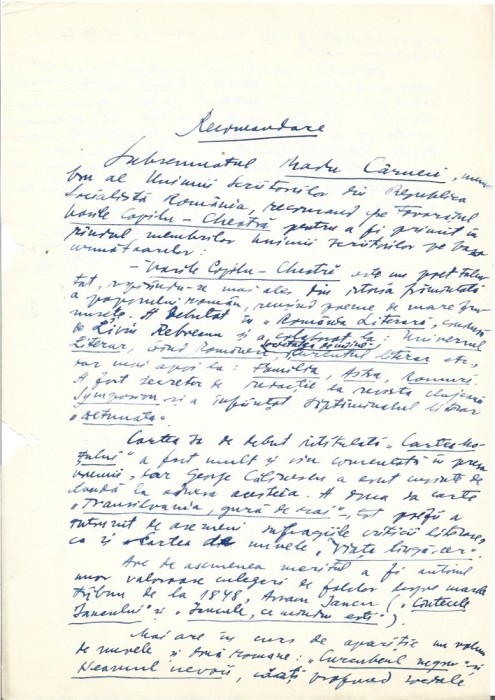 Recomandare
Subsemnatul Radu Cârneci, mem-
bru al Uniunii Scriitorilor din Republica
Socialistă România, recomand pe tovarășul
Vasile Copilu-Cheatră pentru a fi primit în
rîndul membrilor Uniunii scriitorilor pe baza
următoarelor:
- Vasile Copilu-Cheatră este un poet talen-
tat, inspirîndu-se mai ales din istoria frămîntată
a poporului român, scriind poeme de mare fru-
musețe. A debutat în „România Literară", condusă
de Liviu Rebreanu și a colaborat la: Universul
Literar, Gînd Românesc, Societatea de mîine, Curentul literar etc,
iar mai apoi la: Familia, Astra, Ramuri.
A fost secretar de redacție la revista clujeană
Symposion și a înființat săptămînalul literar
„Detunata".
Cartea sa de debut intitulată „Cartea Mo-
țului" a fost mult și viu comentată în presa
vremii, iar George Călinescu a avut cuvinte de
laudă la adresa acesteia. A doua sa carte
„Transilvania, gură de rai", tot poezii a
întrunit de asemeni sufragiile criticii literare,
ca și cartea de nuvele „Viață lîngă cer".
Are de asemenea meritul a fi autorul
unor valoroase culegeri de folclor despre marele
tribun de la 1848, Avram Iancu („Cîntecele
Iancului" și „Iancule, ce mîndru ești").
Mai are în curs de apariție un volum
de nuvele și două romane: „Curcubeul negru" și
Neamul nevoii, căutați vrafuind vastele